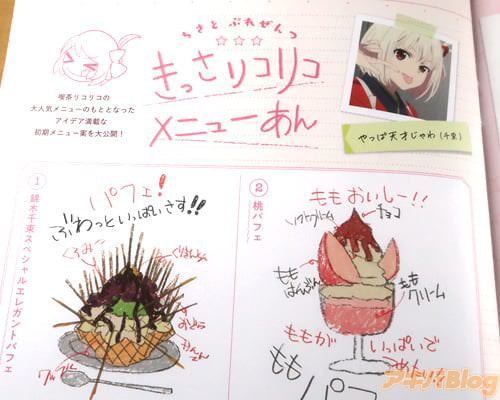 ちさと ぷれぜんつ
☆☆☆
きっさリコリコ
メニューあん
喫茶リコリコの
大人気メニューのもととなった
アイデア満載な
初期メニュー案を大公開！
やっぱ天才じゃわ（千束）
①
錦木千束スペシャルエレガントパフェ
パフェ！
ぶわっといっぱいさす!!
くろみつ
ワッフル
②
桃パフェ
ももおいしー!!
ソフトクリーム
チョコ
ももはんぶん
ももクリーム
ももが
いっぱいで
もも
パフェ
アキバBlog